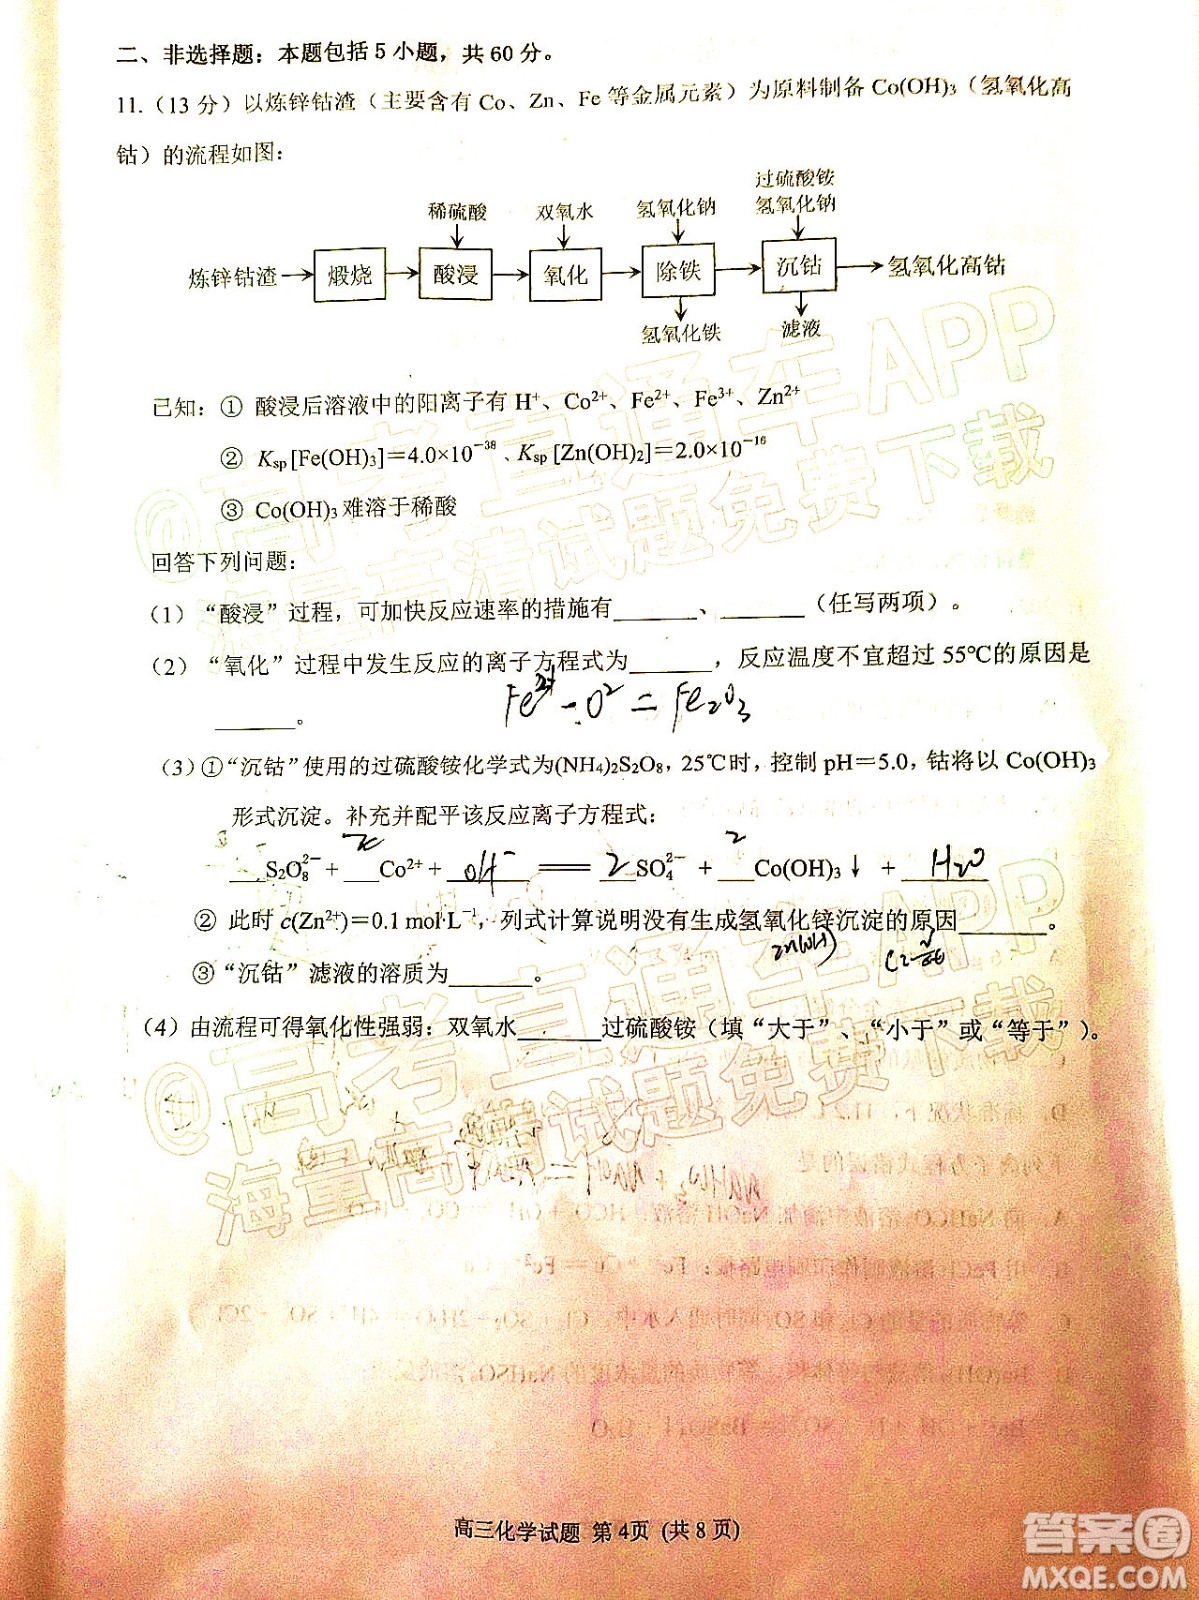 二、非选择题：本题包括5小题，共60分。
11.（13分）以炼锌钴渣（主要含有Co、Zn、Fe等金属元素）为原料制备Co(OH)₃（氢氧化高
钴）的流程如图：
过硫酸铵
稀硫酸 双氧水 氢氧化钠 氢氧化钠
炼锌钴渣 煅烧 酸浸 氧化 除铁 沉钴 氢氧化高钴
氢氧化铁 滤液
已知：① 酸浸后溶液中的阳离子有 H⁺、Co²⁺、Fe²⁺、Fe³⁺、Zn²⁺
② Ksp[Fe(OH)₃]=4.0×10⁻³⁸、Ksp[Zn(OH)₂]=2.0×10⁻¹⁶
③ Co(OH)₃难溶于稀酸
回答下列问题：
（1）“酸浸”过程，可加快反应速率的措施有______、______（任写两项）。
（2）“氧化”过程中发生反应的离子方程式为______，反应温度不宜超过55℃的原因是
______。
（3）①“沉钴”使用的过硫酸铵化学式为(NH₄)₂S₂O₈，25℃时，控制pH=5.0，钴将以Co(OH)₃
形式沉淀。补充并配平该反应离子方程式：
___S₂O₈²⁻+___Co²⁺+ OH⁻ ═══ 2 SO₄²⁻ + 2 Co(OH)₃↓ + H₂O
② 此时c(Zn²⁺)=0.1 mol·L⁻¹，列式计算说明没有生成氢氧化锌沉淀的原因______。
Zn(OH)
③“沉钴”滤液的溶质为______。
（4）由流程可得氧化性强弱：双氧水______过硫酸铵（填“大于”、“小于”或“等于”）。
@高考直通车APP
海量高清试题免费下载
@高考直通车APP
海量高清试题免费下载
高三化学试题 第4页（共8页）
答案圈
MXQE.COM